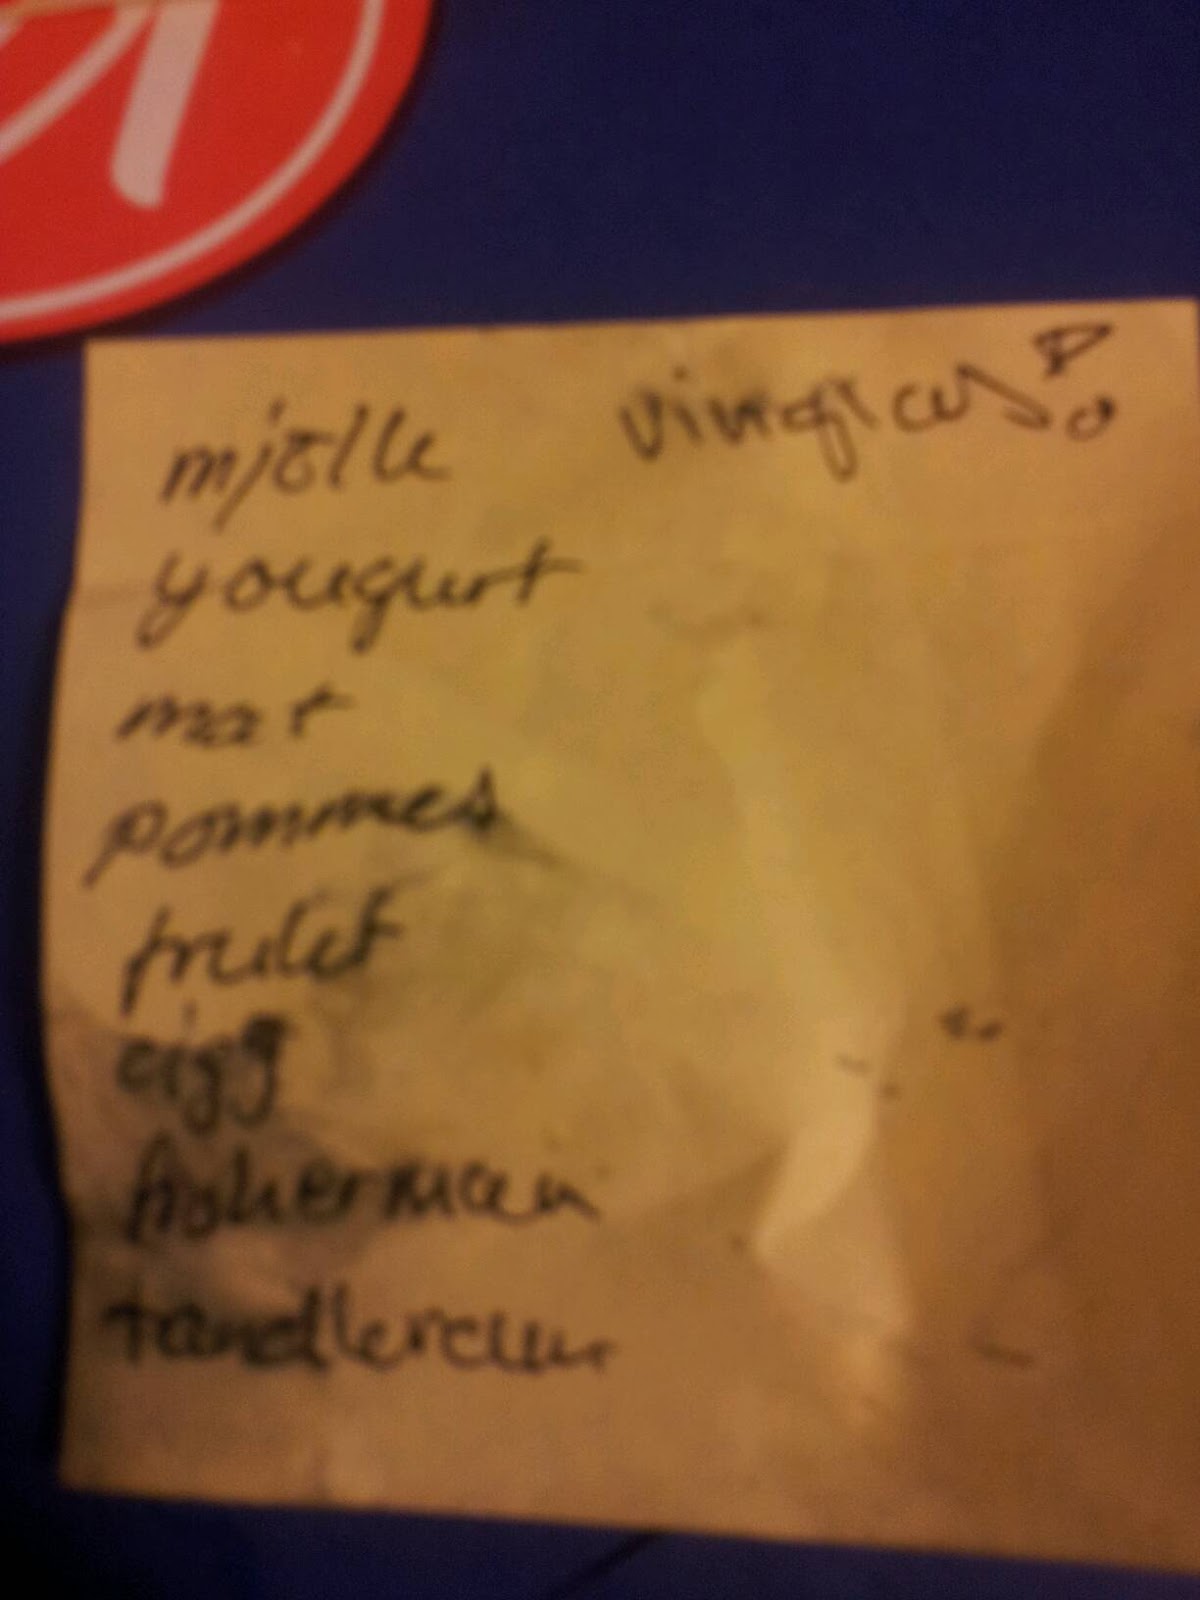 mjölk vinglas!
yougurt
mat
pommes
frukt
ägg
fisherman
tandkräm